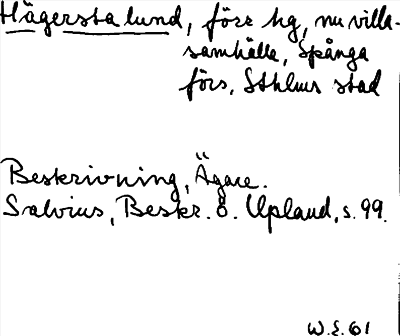 Hägersta lund, förr hg, nu villa-
samhälle, Spånga
förs, Sthlms stad
Beskrivning, Ägare.
Salvius, Beskr. ö. Upland, s. 99.
W.E. 61